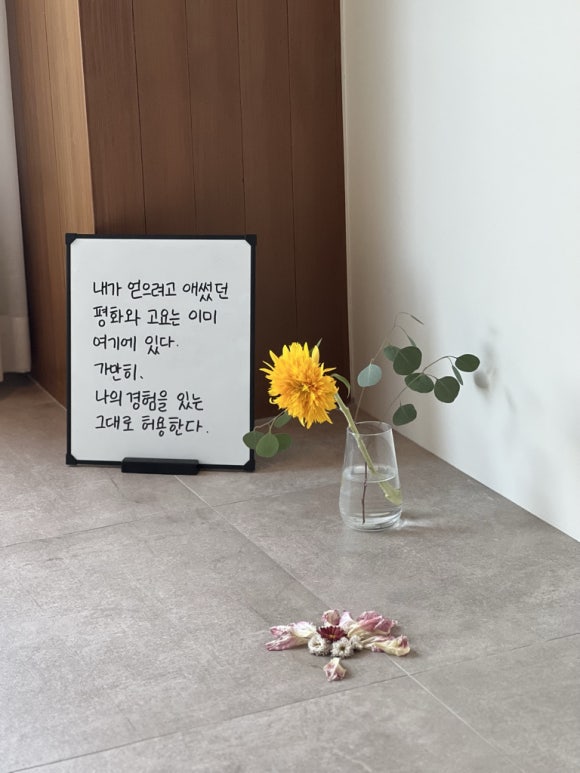 내가 얻으려고 애썼던
평화와 고요는 이미
여기에 있다.
가만히.
나의 경험을 있는
그대로 허용한다.